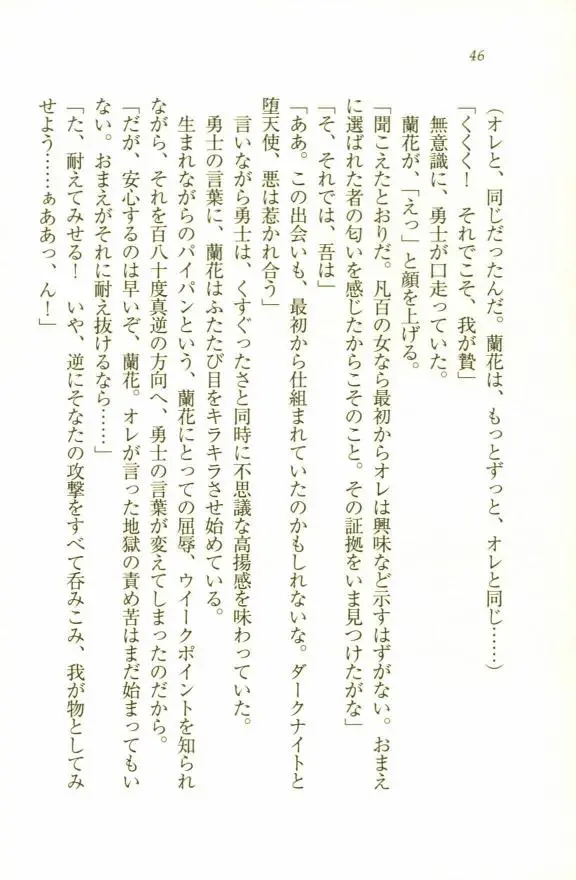 46
（オレと、同じだったんだ。蘭花は、もっとずっと、オレと同じ……）
「くくく！　それでこそ、我が贄」
無意識に、勇士が口走っていた。
蘭花が、「えっ」と顔を上げる。
「聞こえたとおりだ。凡百の女なら最初からオレは興味など示すはずがない。おまえ
に選ばれた者の匂いを感じたからこそのこと。その証拠をいま見つけたがな」
「そ、それでは、吾は」
「ああ。この出会いも、最初から仕組まれていたのかもしれないな。ダークナイトと
堕天使、悪は惹かれ合う」
言いながら勇士は、くすぐったさと同時に不思議な高揚感を味わっていた。
勇士の言葉に、蘭花はふたたび目をキラキラさせ始めている。
生まれながらのパイパンという、蘭花にとっての屈辱、ウイークポイントを知られ
ながら、それを百八十度真逆の方向へ、勇士の言葉が変えてしまったのだから。
「だが、安心するのは早いぞ、蘭花。オレが言った地獄の責め苦はまだ始まってもい
ない。おまえがそれに耐え抜けるなら……」
「た、耐えてみせる！　いや、逆にそなたの攻撃をすべて呑みこみ、我が物としてみ
せよう……ぁああっ、ん！」